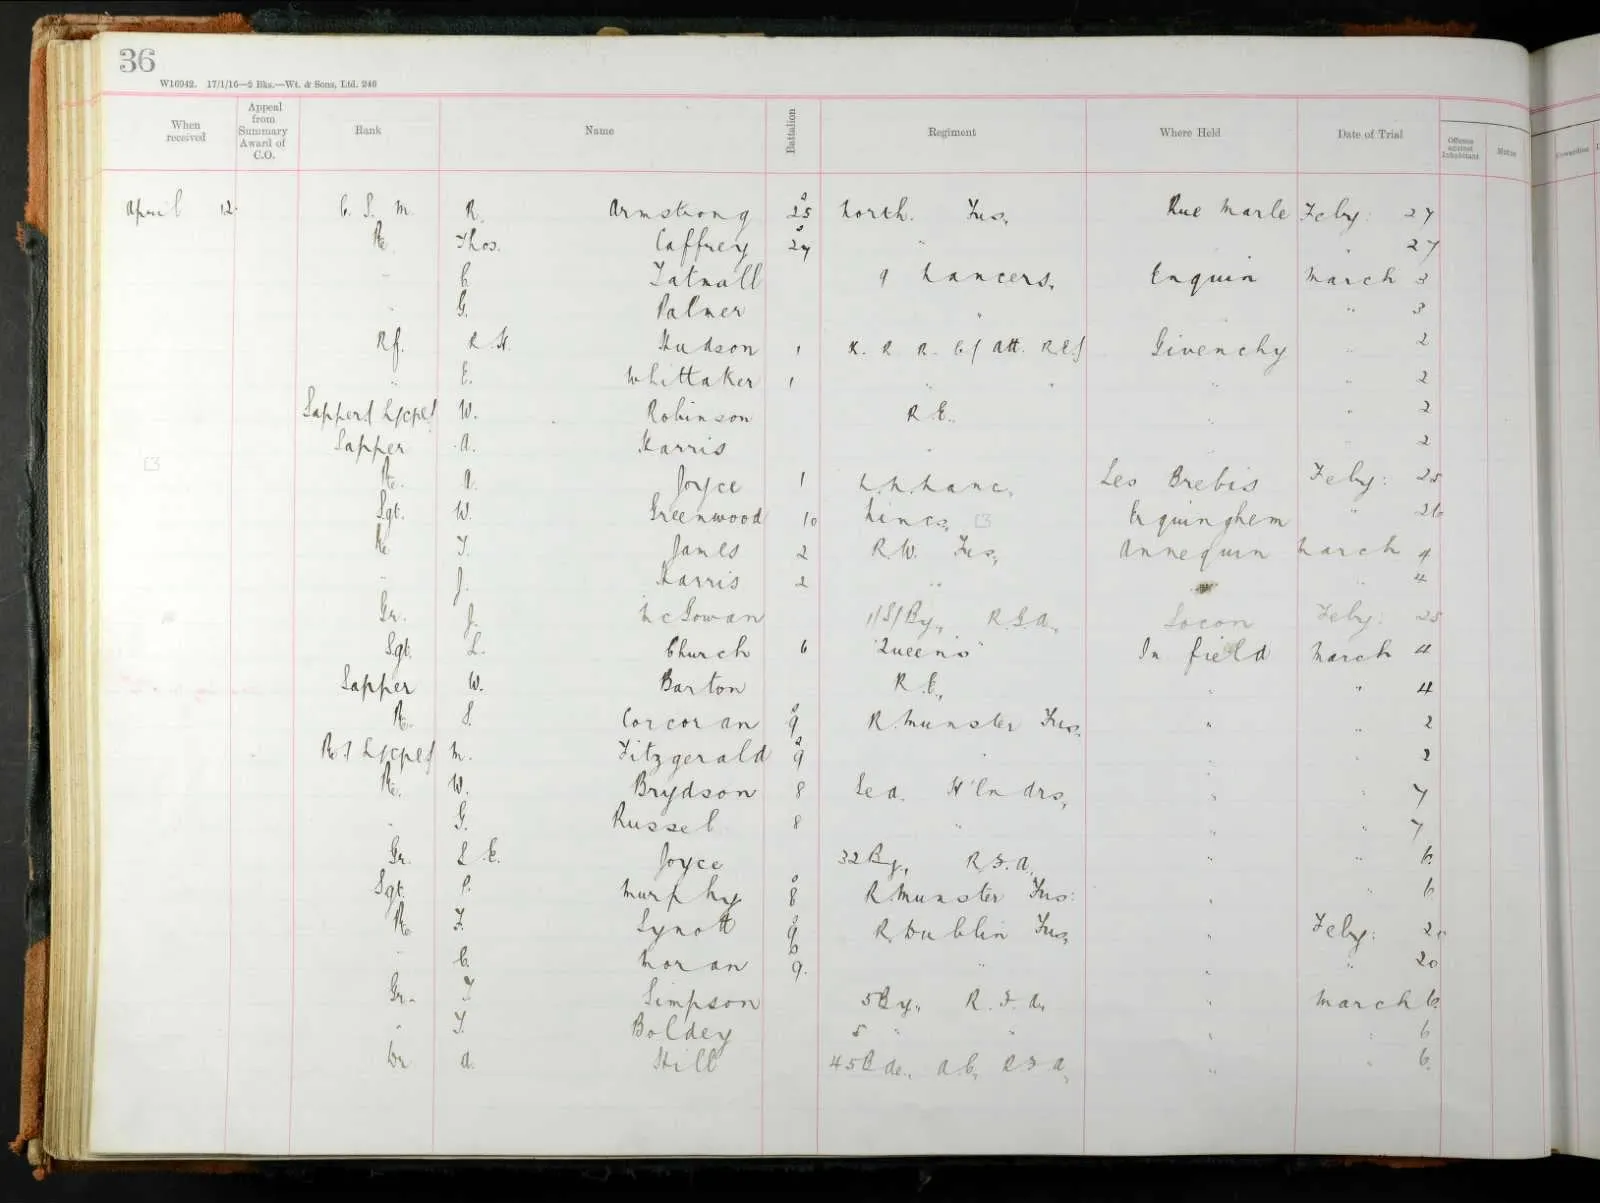 36
W16942. 17/1/16—2 Bks.—Wt. & Sons, Ltd. 246
When received | Appeal from Summary Award of C.O. | Rank | Name | Battalion | Regiment | Where Held | Date of Trial | Offence against Inhabitant | Mutin
April 12 C. S. M. R. Armstrong 25 North. Fus, Rue Marle Feby: 27
Pte. Thos. Caffrey 27 " " 27
" C. Tatnall 9 Lancers, Enquin March 3
" G. Palmer " " 3
Rf. R H. Hudson 1 K. R R. C/ att. R.E/ Givenchy " 2
" E. Whittaker 1 " " " " 2
Sapper/ L/cpl/ W. Robinson R E. " " 2
Sapper A. Harris " " " 2
Pte. A. Joyce 1 L.N.Lanc, Les Brebis Feby: 25
Sgt. W. Greenwood 10 Lincs, Erquinghem " 26
Pte T. James 2 R.W. Fus, Annequin March 4
" J. Harris 2 " " 4
Gr. J. McGowan 1/S/By, R.G.A, Locon Feby: 25
Sgt. L. Church 6 "Queens" In field March 4
Sapper W. Barton R.E, " " 4
Pte. S. Corcoran 9 R.Munster Fus, " " 2
Pte/ L/cpl/ M. Fitzgerald 9 " " " 2
Pte. W. Brydson 8 Sea. H'ln drs, " " 7
" G. Russel 8 " " " 7
Gr. L E. Joyce 32 By, R.F.A, " " 6
Sgt. P. Murphy 8 R.Munster Fus: " " 6
Pte F. Synott 9 R.Dublin Fus, " Feby: 20
" C. Moran 9. " " " 20
Gr. T Simpson 5 By, R.F.A, " March 6
" T. Boldey 5 " " " " 6
Dr A. Hill 45 Bde., A.C, R F A, " " 6.